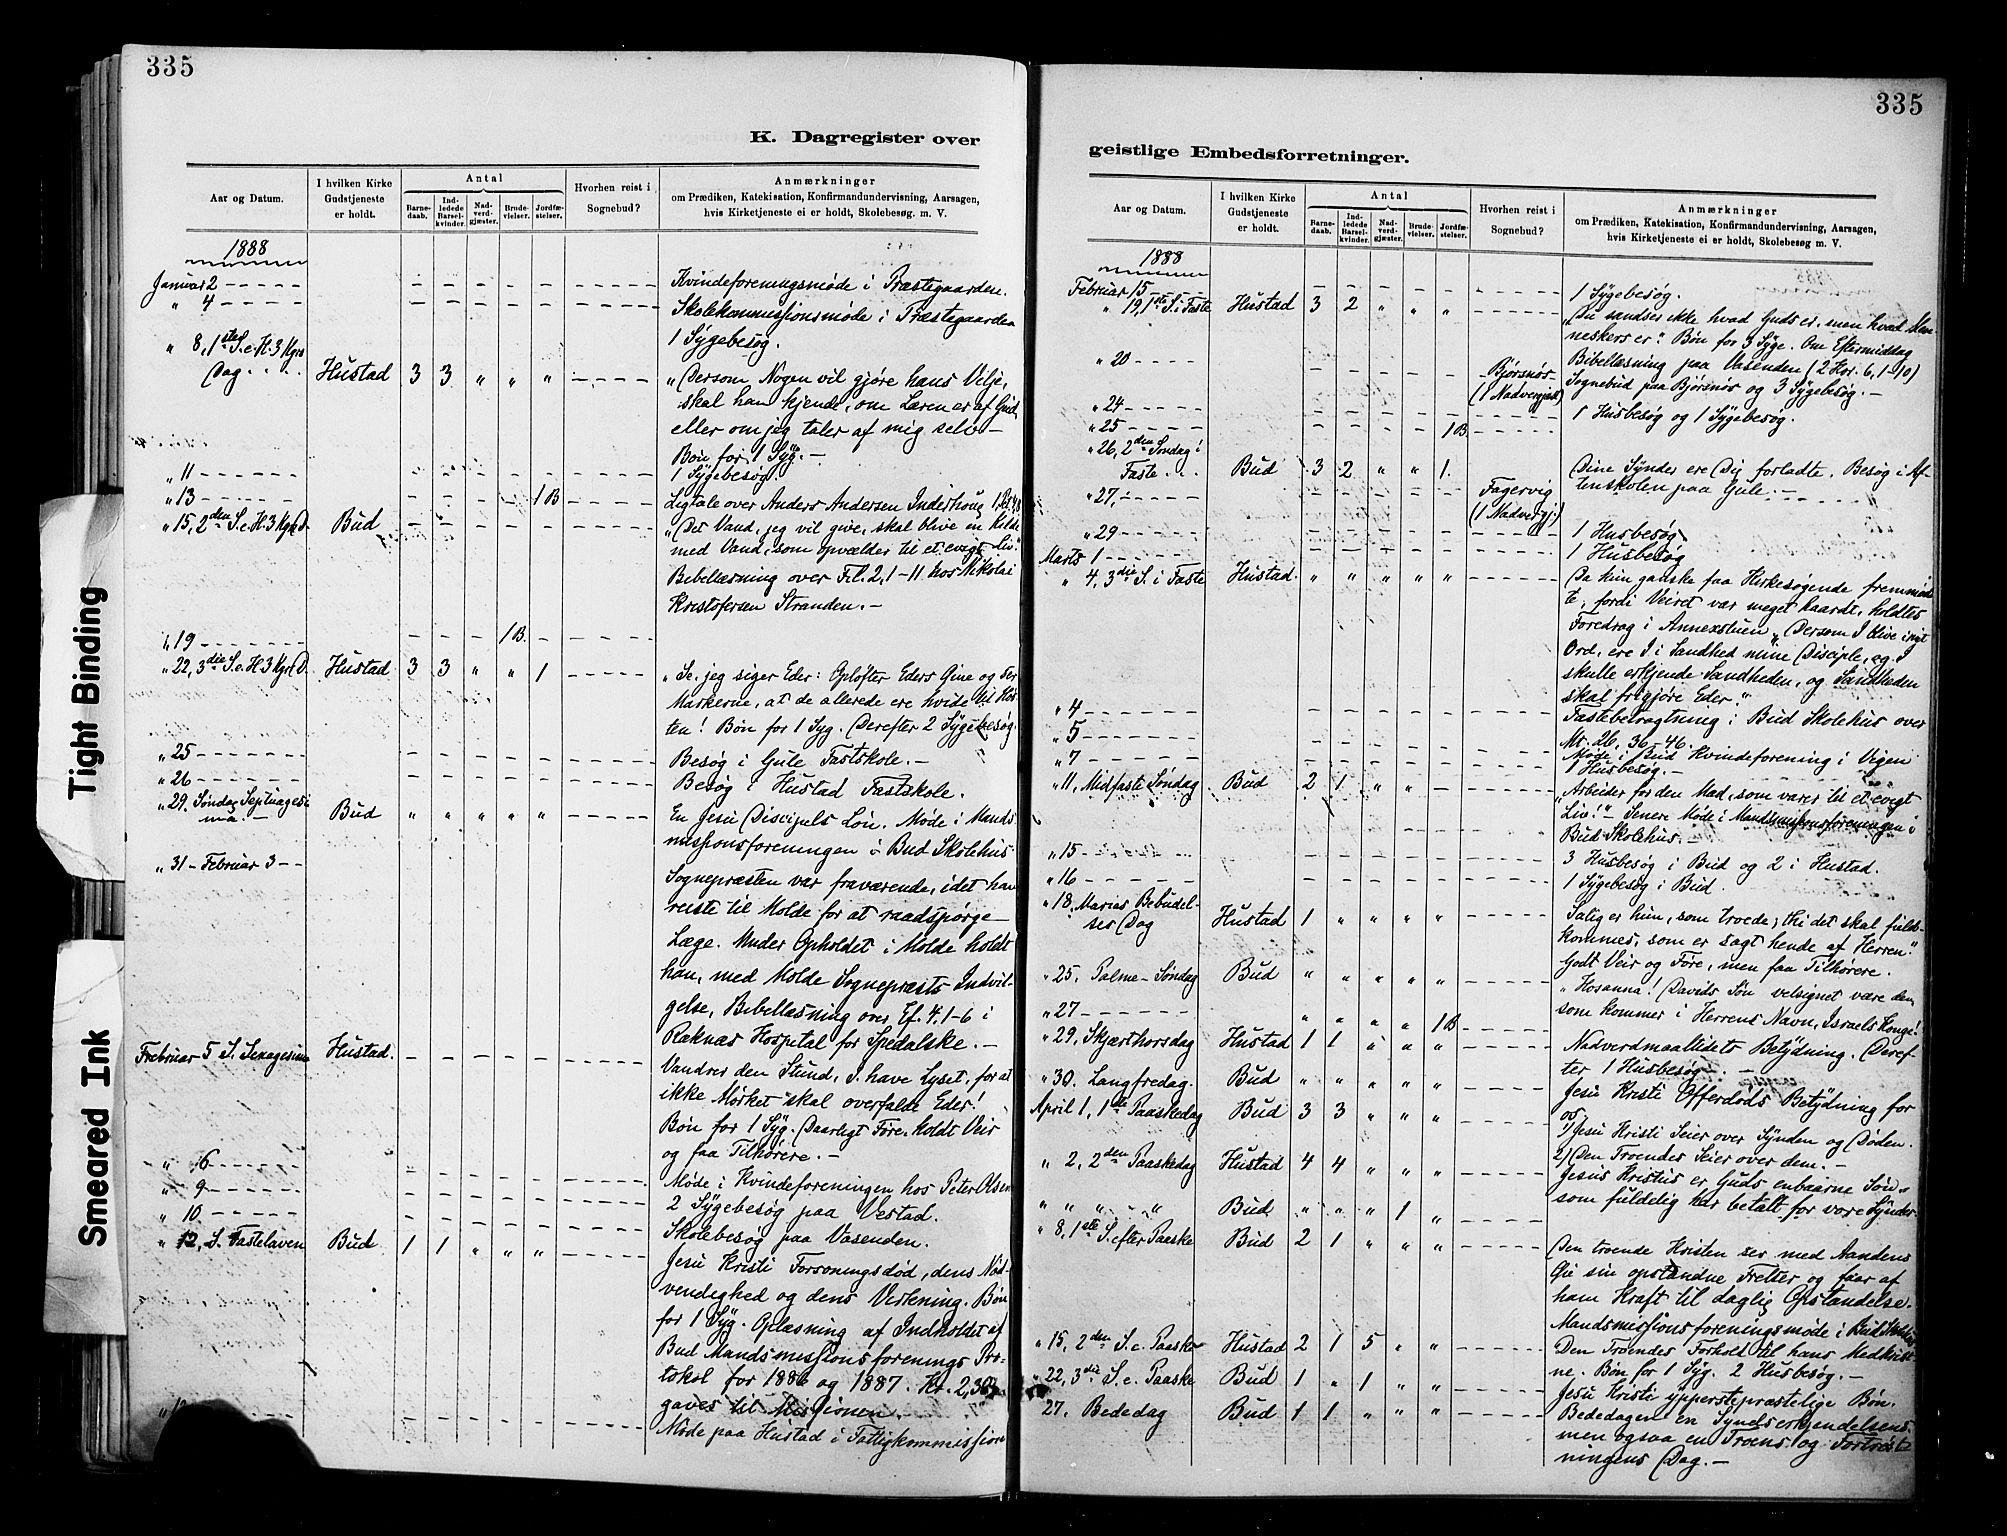 335
K. Dagregister over
Aar og Datum.
I hvilken Kirke Gudstjeneste er holdt.
Antal
Barnedaab.
Indledede Barselkvinder.
Nadverdgjæster.
Brudevielser.
Jordfæstelser.
Hvorhen reist i Sognebud?
Anmærkninger
om Prædiken, Katekisation, Konfirmandundervisning, Aarsagen,
hvis Kirketjeneste ei er holdt, Skolebesøg m. V.
1888
Januar 2 - - - - - Kvindeforeningsmøde i Præstegaarden.
" 4 - - - - - Skolekommissjonsmøde i Præstegaarden
1 Sÿgebesøg.
" 8, 1ste S. e. H. 3 Kgrs
Dag . . . Hustad 3 3 " " " - - - - „Dersom Nogen vil gjøre hans Vilje,
skal han kjende, om Læren er af Gud
eller om jeg taler af mig selv -
Bøn for 1 Sÿg. -
" 11 - - - - - 1 Sÿgebesøg.
" 13 - - - - - 1 B - - - - Ligtale over Anders Andersen Inderhoug
" 15, 2den S. e. H. 3 Kgr. D. Bud - - - - - „Det Vand, jeg vil give, skal blive en Kilde
med Vand, som opvælder til et evigt Liv."
Bibellæsning over Fil. 2, 1-11 hos Nikolai
Kristofersen Stranden. -
" 19 - - - - - 1 B. - - - - -
" 22, 3die S. e. H. 3 Kgr. D. Hustad 3 3 " " 1 - - - - „Se, jeg siger Eder: Opløfter Eders Øine og ser
Markerne, at de allerede ere hvide til Høs-
ten! Bøn for 1 Syg. Derefter 2 Sÿgebesøg.
" 25 - - - - - Besøg i Gule Fastskole. -
" 26 - - - - - Besøg i Hustad Fastskole.
" 29. Søndag Septuagesi-
ma. - Bud " " " " " En Jesu Discipels Løn. Møde i Mands-
missjonsforeningen i Bud Skolehus
" 31 - Februar 3 - - Sognepræsten var fraværende, idet han
reiste til Molde for at raadspørge
Læge. Under Opholdet i Molde holdt
han, med Molde Sognepræsts Indvil-
gelse, Bibellæsning over Ef. 4, 1-6 i
Raknæs Hospital for Spedalske. -
Februar 5 S. Sexagesima Hustad. - - - - - Vandrer den Stund, I have Lyset, for at
ikke Mørket skal overfalde Eder!
Bøn for 1 Sÿg. Daarligt Føre. Koldt Veir
og faa Tilhørere. -
" 6 - - - - - Møde i Kvindeforeningen hos Peter Olsen
" 9 - - - - - 2 Sÿgebesøg paa Vestad.
" 10 - - - - - Skolebesøg paa Vasenden.
" 12, S. Fastelaven Bud 1 1 " " " - - - - Jesu Kristi Forsoningsdød, dens Nød-
vendighed og dens Virkning. Bøn
for 1 Sÿg. Oplæsning af Indholdet af
Bud Mandsmissjonsforenings Pro-
tokol for 1886 og 1887. Kr. 2,30
gaves til Missjonen.
Møde paa Hustad i Fattigkommission
335
geistlige Embedsforretninger.
Aar og Datum.
I hvilken Kirke Gudstjeneste er holdt.
Antal
Barnedaab.
Indledede Barselkvinder.
Nadverdgjæster.
Brudevielser.
Jordfæstelser.
Hvorhen reist i Sognebud?
Anmærkninger
om Prædiken, Katekisation, Konfirmandundervisning, Aarsagen,
hvis Kirketjeneste ei er holdt, Skolebesøg m. V.
1888
Februar 15 - - - - - 1 Sÿgebesøg.
" 19, 1ste S. i Faste Hustad 3 2 " " " - - - - „Du sandser ikke hvad Guds er, men hvad Men-
neskers er". Bøn for 3 Syge. Om Eftermiddag
Bibellæsning paa Vasenden (2 Kor. 6, 1-10)
" 20 - - - - - Bjørsnøs (1 Nadvergjæst) Sognebud paa Bjørsnøs og 3 Sÿgebesøg. -
" 24 - - - - - 1 Husbesøg og 1 Sÿgebesøg.
" 25 - - - - - 1 B - - - -
" 26, 2den Søndag i
Faste . . Bud 3 2 " " 1. Dine Sÿnder ere Dig forladte. Besøg i Af-
tenskolen paa Gule. -
" 27, - - - - - Fagervig (1 Nadvergj.)
" 29 - - - - - 1 Husbesøg
Marts 1 - - - - - 1 Husbesøg
" 4, 3die S. i Faste Hustad. " " " " " - - - - Da kun ganske faa Kirkesøgende fremmød-
te, fordi Veiret var meget haardt, holdtes
Foredrag i Annexstuen „Dersom I blive i mit
Ord, ere I i Sandhed mine Disciple, og I
skulle erkjende Sandheden, og Sandheden
skal frigjøre Eder."
" 4 - - - - - Fastebetragtning i Bud Skolehus over
Mt. 26, 36-46.
" 5 - - - - - Møde i Bud Kvindeforening i Vigen
" 7 - - - - - 1 Husbesøg. -
" 11, Midfaste Søndag Bud 2 1 " " - - - - - „Arbeider for den Mad, som varer til et evigt
Liv!" - Senere Møde i Mandsmissjonsforeningen i
Bud Skolehus. -
" 15 - - - - - 3 Husbesøg i Bud og 2 i Hustad.
" 16 - - - - - 1 Sÿgebesøg i Bud.
" 18. Marias Bebudel-
ses Dag Hustad 1 " " " " - - - - Salig er hun, som troede; thi det skal fuld-
kommes, som er sagt hende af Herren."
Godt Veir og Føre, men faa Tilhørere.
" 25. Palme-Søndag Bud " " " " " - - - - „Hosanna! Davids Søn velsignet være den,
som kommer i Herrens Navn, Israels Konge!
" 27 - - - - - " " " " 1 B - - - -
" 29, Skjærthorsdag Hustad 1 1 " " " - - - - Nadverdmaaltidets Betÿdning. Deref-
ter 1 Husbesøg. -
" 30. Langfredag. Bud " " " " " - - - - Jesu Kristi Offerdøds Betÿdning for
os.
April 1, 1ste Paaskedag Bud 3 3 " " " - - - - 1) Jesu Kristi Seier over Sÿnden og Døden.
2) Den Troendes Seier over dem. -
" 2, 2den Paaskedag Hustad 4 4 " " " - - - - Jesus Kristus er Guds enbaarne Søn,
som fuldelig har betalt for vore Sÿnder
" " " " Bud " " " 1 " - - - -
" 8, 1ste S. efter Paaske Bud 2 1 " " " - - - - Den troende Kristen ser med Aandens
Øie sin opstandne Frelser og faar af
ham Kraft til daglig Opstandelse.
Mandsmissionsforeningsmøde i Bud Skolehus
" 15, 2den S. e. Paaske Hustad 2 1 5 " " - - - - Den Troendes Forhold til hans Medkrist-
ne. Bøn for 1 Sÿg. 2 Husbesøg. -
" 22, 3die S. e. Paaske Bud 1 " 1 " " - - - - Jesu Kristi ÿpperstepræstelige Bøn.
27. Bededag Bud 1 1 " " " - - - - Bededagen en Syndserkjendelsens,
men ogsaa en Troens og Fortrøst-
ningens Dag. -
Tight Binding
Smeared Ink